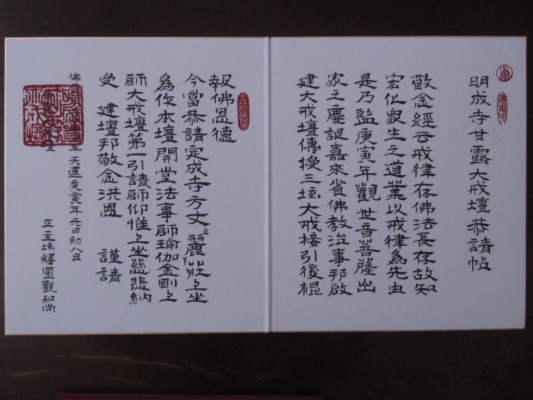 明成寺甘露大戒壇恭請帖
敬念經云戒律存佛法長存故知
宏化眾生之道業以戒律為先
是乃 庚寅年觀世音菩薩出
家之慶誕嘉來省佛教治事邦啟
建大戒壇傳授三坛大戒接引後棍
報佛恩德
今當恭請定成寺方丈上麗莊上坐
為作本壇開堂法事師瑜伽金剛上
師大戒壇第一引請師仰惟上坐慈悲納
受 建壇邦敬念洪恩 謹請
佛 年天運庚寅年元日初八日